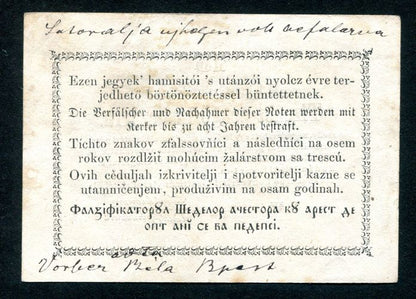 Satoralja ujhelyen volt befalazva
Ezen jegyek' hamisitói 's utánzói nyolcz évre ter-
jedhető börtönöztetéssel büntettetnek.
Die Verfälscher und Nachahmer dieser Noten werden mit
Kerker bis zu acht Jahren bestraft.
Tichto znakov zfalssovňíci a následňíci na osem
rokov rozdlžiť mohúcim žalárstvom sa trescú.
Ovih cèduljah izkrivitelji i spotvoritelji kazne se
utamničenjem, produživim na osam godinah.
Фалꙋіфікаторꙋл Шеделор ачестора кꙋ арест де
опт анӥ се ва педепсі.
Vorber Béla Bpest